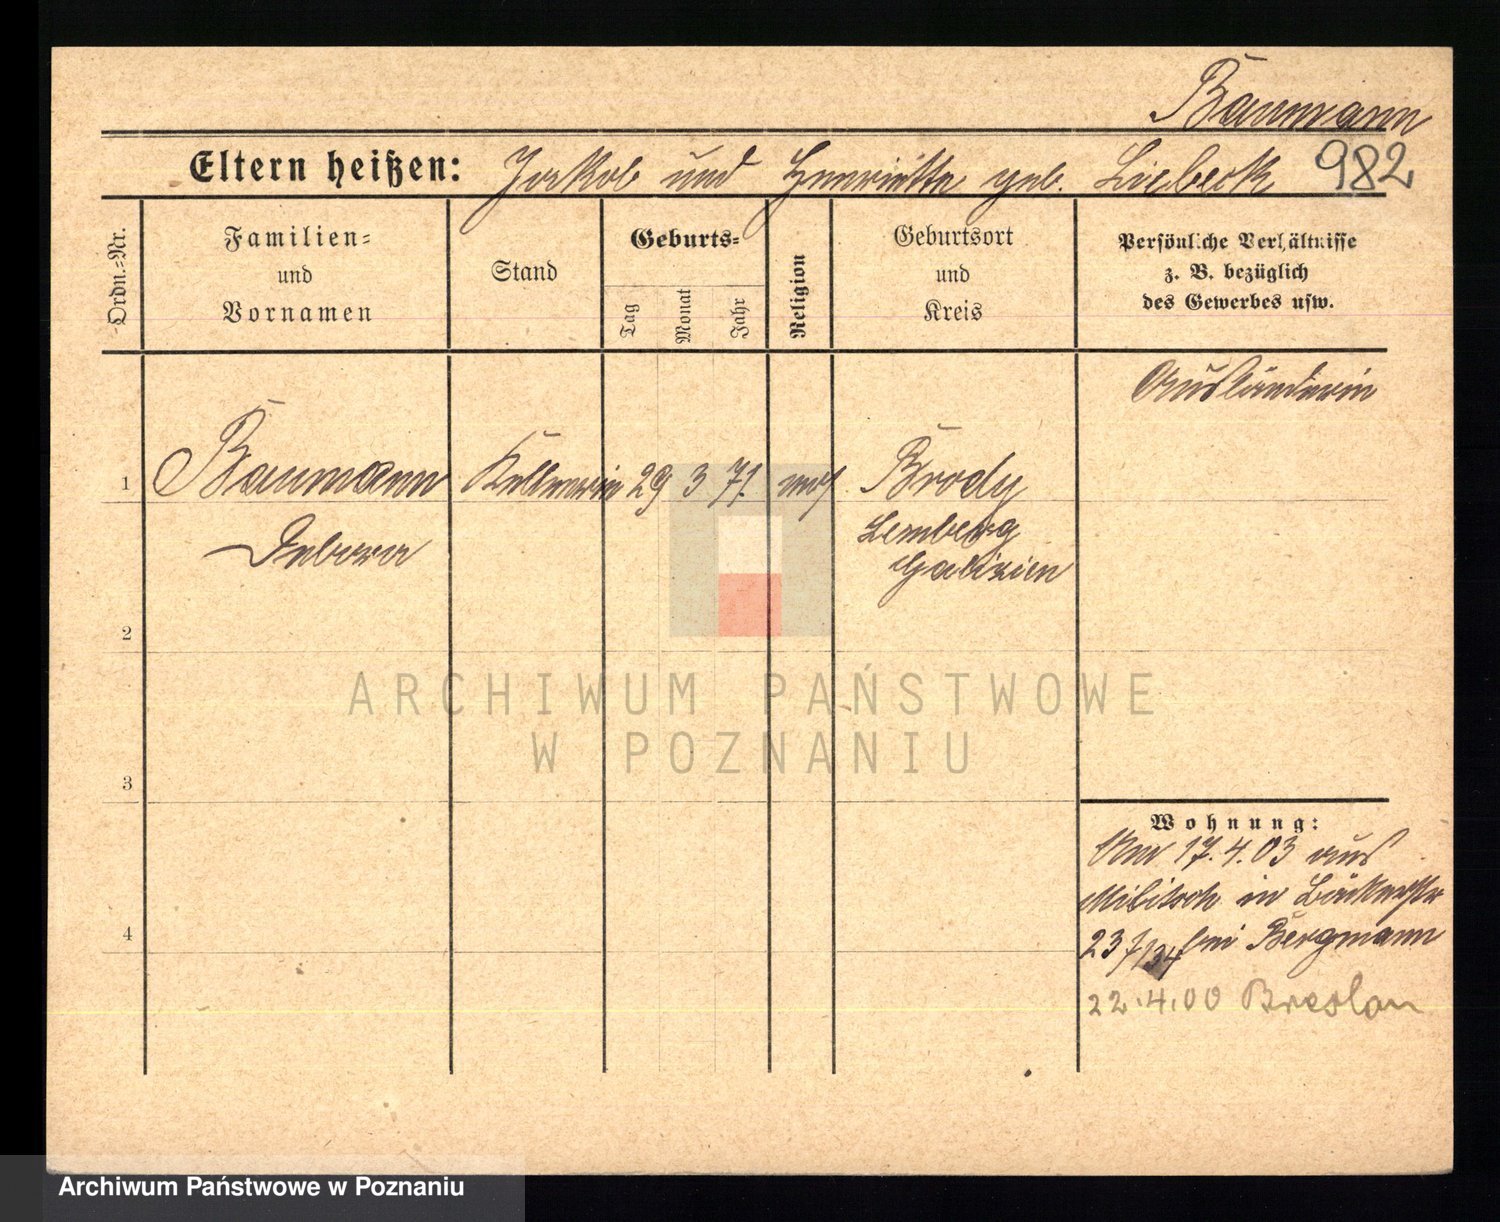 Baumann
Eltern heißen: Jakob und Henriette geb. Liebeck 982
Ordn.=Nr.
Familien=
und
Vornamen
Stand
Geburts=
Tag
Monat
Jahr
Religion
Geburtsort
und
Kreis
Persönliche Verhältnisse
z. B. bezüglich
des Gewerbes usw.
Ausländerin
1 Baumann Kellnerin 29 3 71. mos Brody
Debora Lemberg
Galizien
2
ARCHIWUM PAŃSTWOWE
W POZNANIU
3
Wohnung:
Am 17.4.03 aus
Militsch in Bäckerstr
4
23 bei Bergmann
22.4.00 Breslau
Archiwum Państwowe w Poznaniu